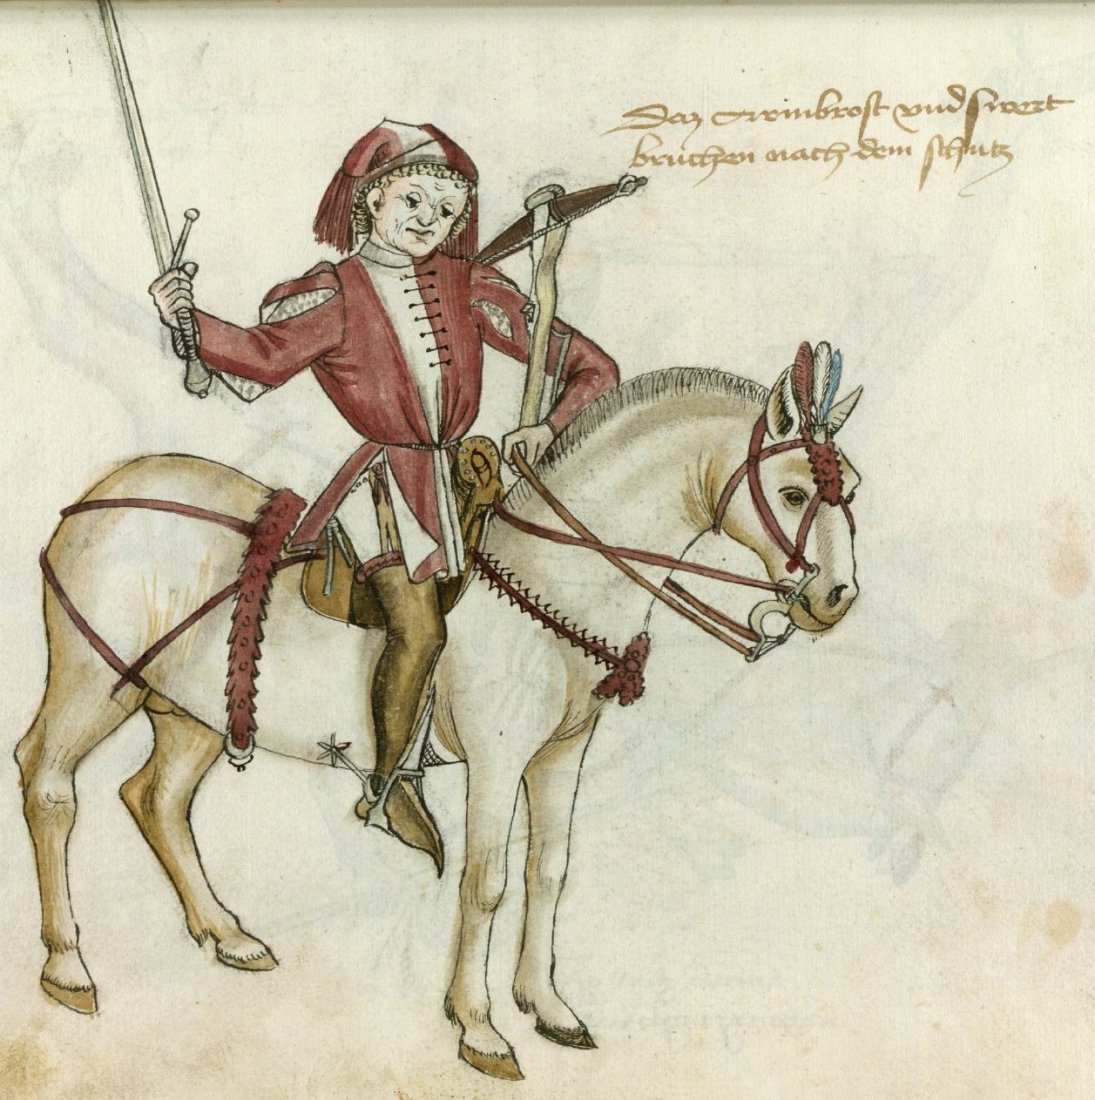 Daz Armbrost vnd swert
bruchen nach dem schutz